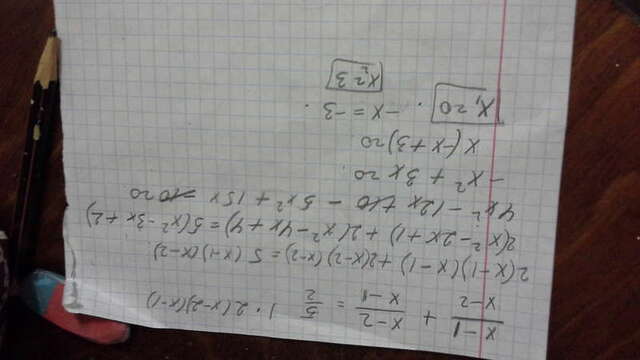 x-1/x-2 + x-2/x-1 = 5/2 | · 2(x-2)(x-1)
2(x-1)(x-1) + 2(x-2)(x-2) = 5(x-1)(x-2)
2(x²-2x+1) + 2(x²-4x+4) = 5(x²-3x+2)
4x² - 12x +10 - 5x² + 15x -10=0
-x² + 3x = 0
x(-x+3)=0
x₁=0 . -x = -3 .
x₂=3